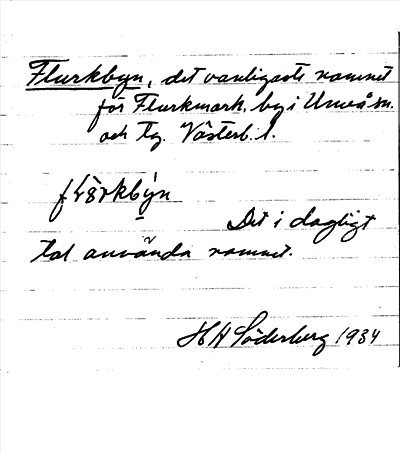 Flurkbyn, det vanligaste namnet
för Flurkmark, by i Umeå sn.
och tg. Västerb. l.
Det i dagligt
tal använda namnet.
H A Söderberg 1934